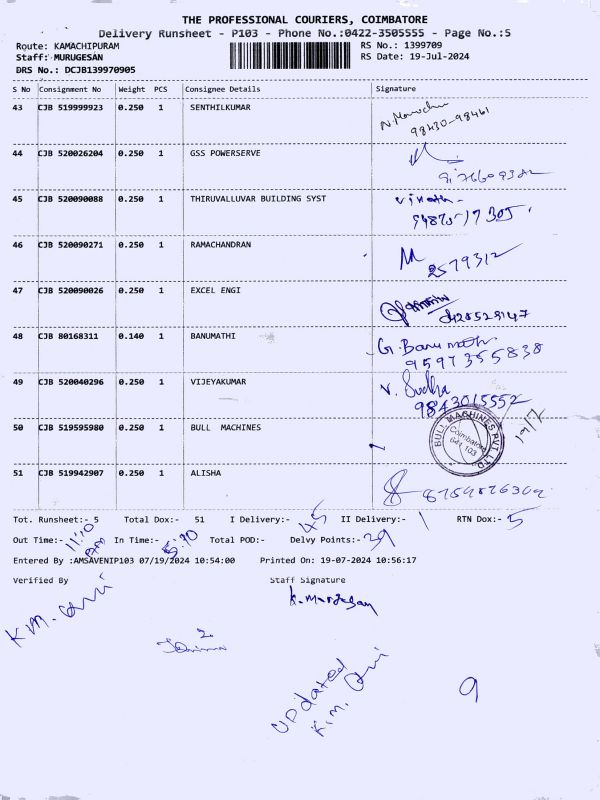 THE PROFESSIONAL COURIERS, COIMBATORE
Delivery Runsheet - P103 - Phone No.:0422-3505555 - Page No.:5
Route: KAMACHIPURAM RS No.: 1399709
Staff: MURUGESAN RS Date: 19-Jul-2024
DRS No.: DCJB139970905
S No Consignment No Weight PCS Consignee Details Signature
43 CJB 519999923 0.250 1 SENTHILKUMAR
98430-98461
44 CJB 520026204 0.250 1 GSS POWERSERVE
45 CJB 520090088 0.250 1 THIRUVALLUVAR BUILDING SYST
46 CJB 520090271 0.250 1 RAMACHANDRAN M
2579312
47 CJB 520090026 0.250 1 EXCEL ENGI
48 CJB 80168311 0.140 1 BANUMATHI G. Banumathi
9597355838
49 CJB 520040296 0.250 1 VIJEYAKUMAR V. Sudha
9843015552
50 CJB 519595980 0.250 1 BULL MACHINES BULL MACHINES PVT LTD Coimbatore 641 103 19/7
51 CJB 519942907 0.250 1 ALISHA
Tot. Runsheet:- 5 Total Dox:- 51 I Delivery:- 45 II Delivery:- 1 RTN Dox:- 5
Out Time:- 11:10 AM In Time:- 5:10 Total POD:- Delvy Points:- 39
Entered By :AMSAVENIP103 07/19/2024 10:54:00 Printed On: 19-07-2024 10:56:17
Verified By Staff Signature
K.M. K. Murugesan
2
updated
K.M.
9